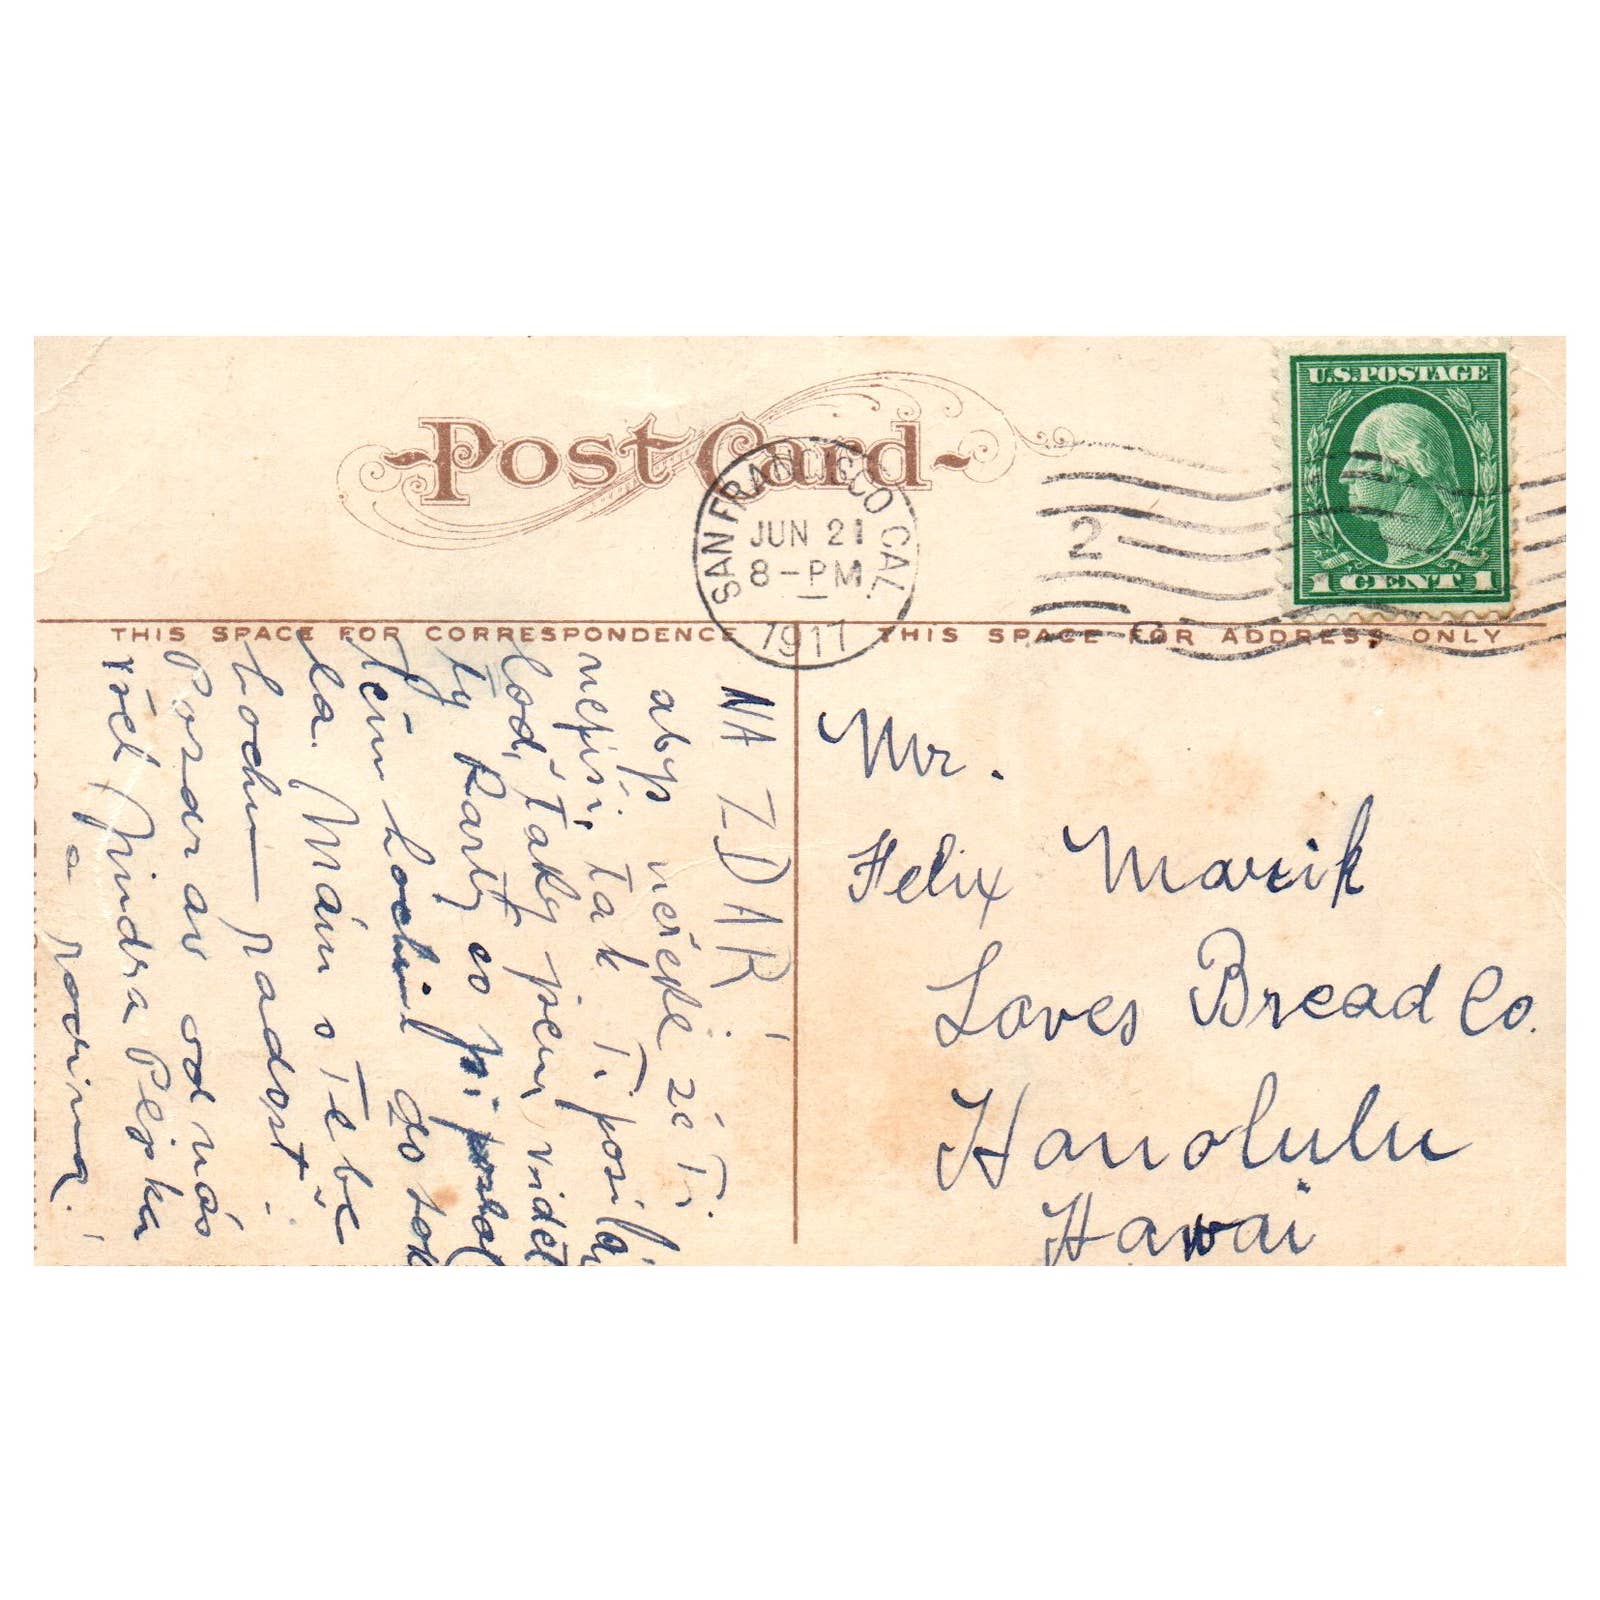 Post Card
SAN FRANCISCO CAL.
JUN 21
8-PM
1917
2
U.S. POSTAGE
1 CENT 1
THIS SPACE FOR CORRESPONDENCE
THIS SPACE FOR ADDRESS ONLY
NA ZDAR
abys neřekl že Ti
nepíši, tak Ti posílá
loď, taky jsem viděl
ty karty co si poslal
těm hochům do sok
la. Mám s Tebe
hochu radost.
Pozdrav od nás
všech Jindra Pejska
a rodina.
Mr.
Felix Marik
Loves Bread Co.
Honolulu
Hawai